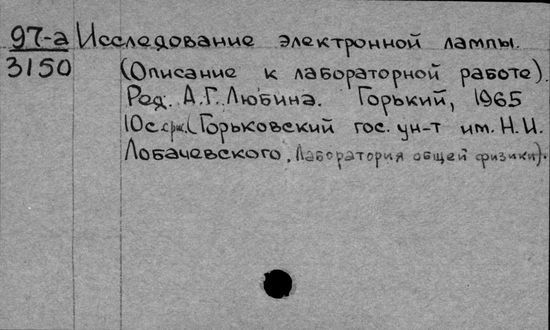 97-а Исследование электронной лампы.
3150 (Описание к лабораторной работе).
Ред. А.Г. Любина. Горький, 1965
10с. срж. (Горьковский гос. ун-т им. Н.И.
Лобачевского. Лаборатория общей физики).